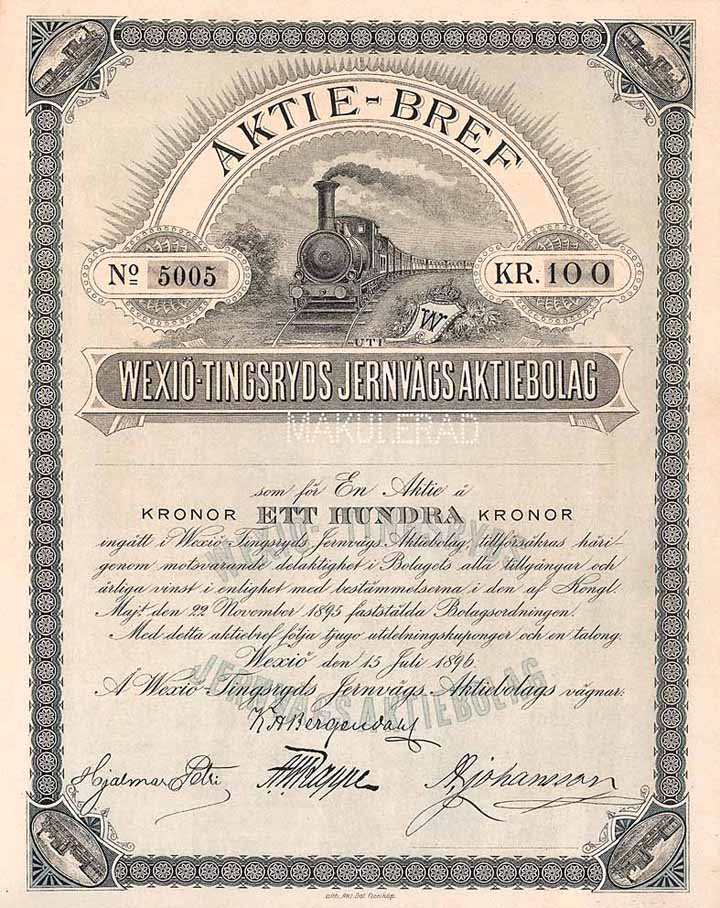 AKTIE-BREF
No 5005
KR. 100
W
UTI
WEXIÖ-TINGSRYDS JERNVÄGSAKTIEBOLAG
MAKULERAD
som för En Aktie å
KRONOR ETT HUNDRA KRONOR
ingått i Wexiö-Tingsryds Jernvägs-Aktiebolag, tillförsäkras häri-
genom motsvarande delaktighet i Bolagets alla tillgångar och
årliga vinst i enlighet med bestämmelserna i den af Kongl.
Majt. den 22 November 1895 fastställda Bolagsordningen.
Med detta aktiebref följa tjugo utdelningskuponger och en talong.
Wexiö den 15 Juli 1896.
Å Wexiö-Tingsryds Jernvägs-Aktiebolags vägnar:
WEXIÖ-TINGSRYDS
JERNVÄGSAKTIEBOLAG
K A Bergendahl
Hjalmar Petri
Rappe
Johansson